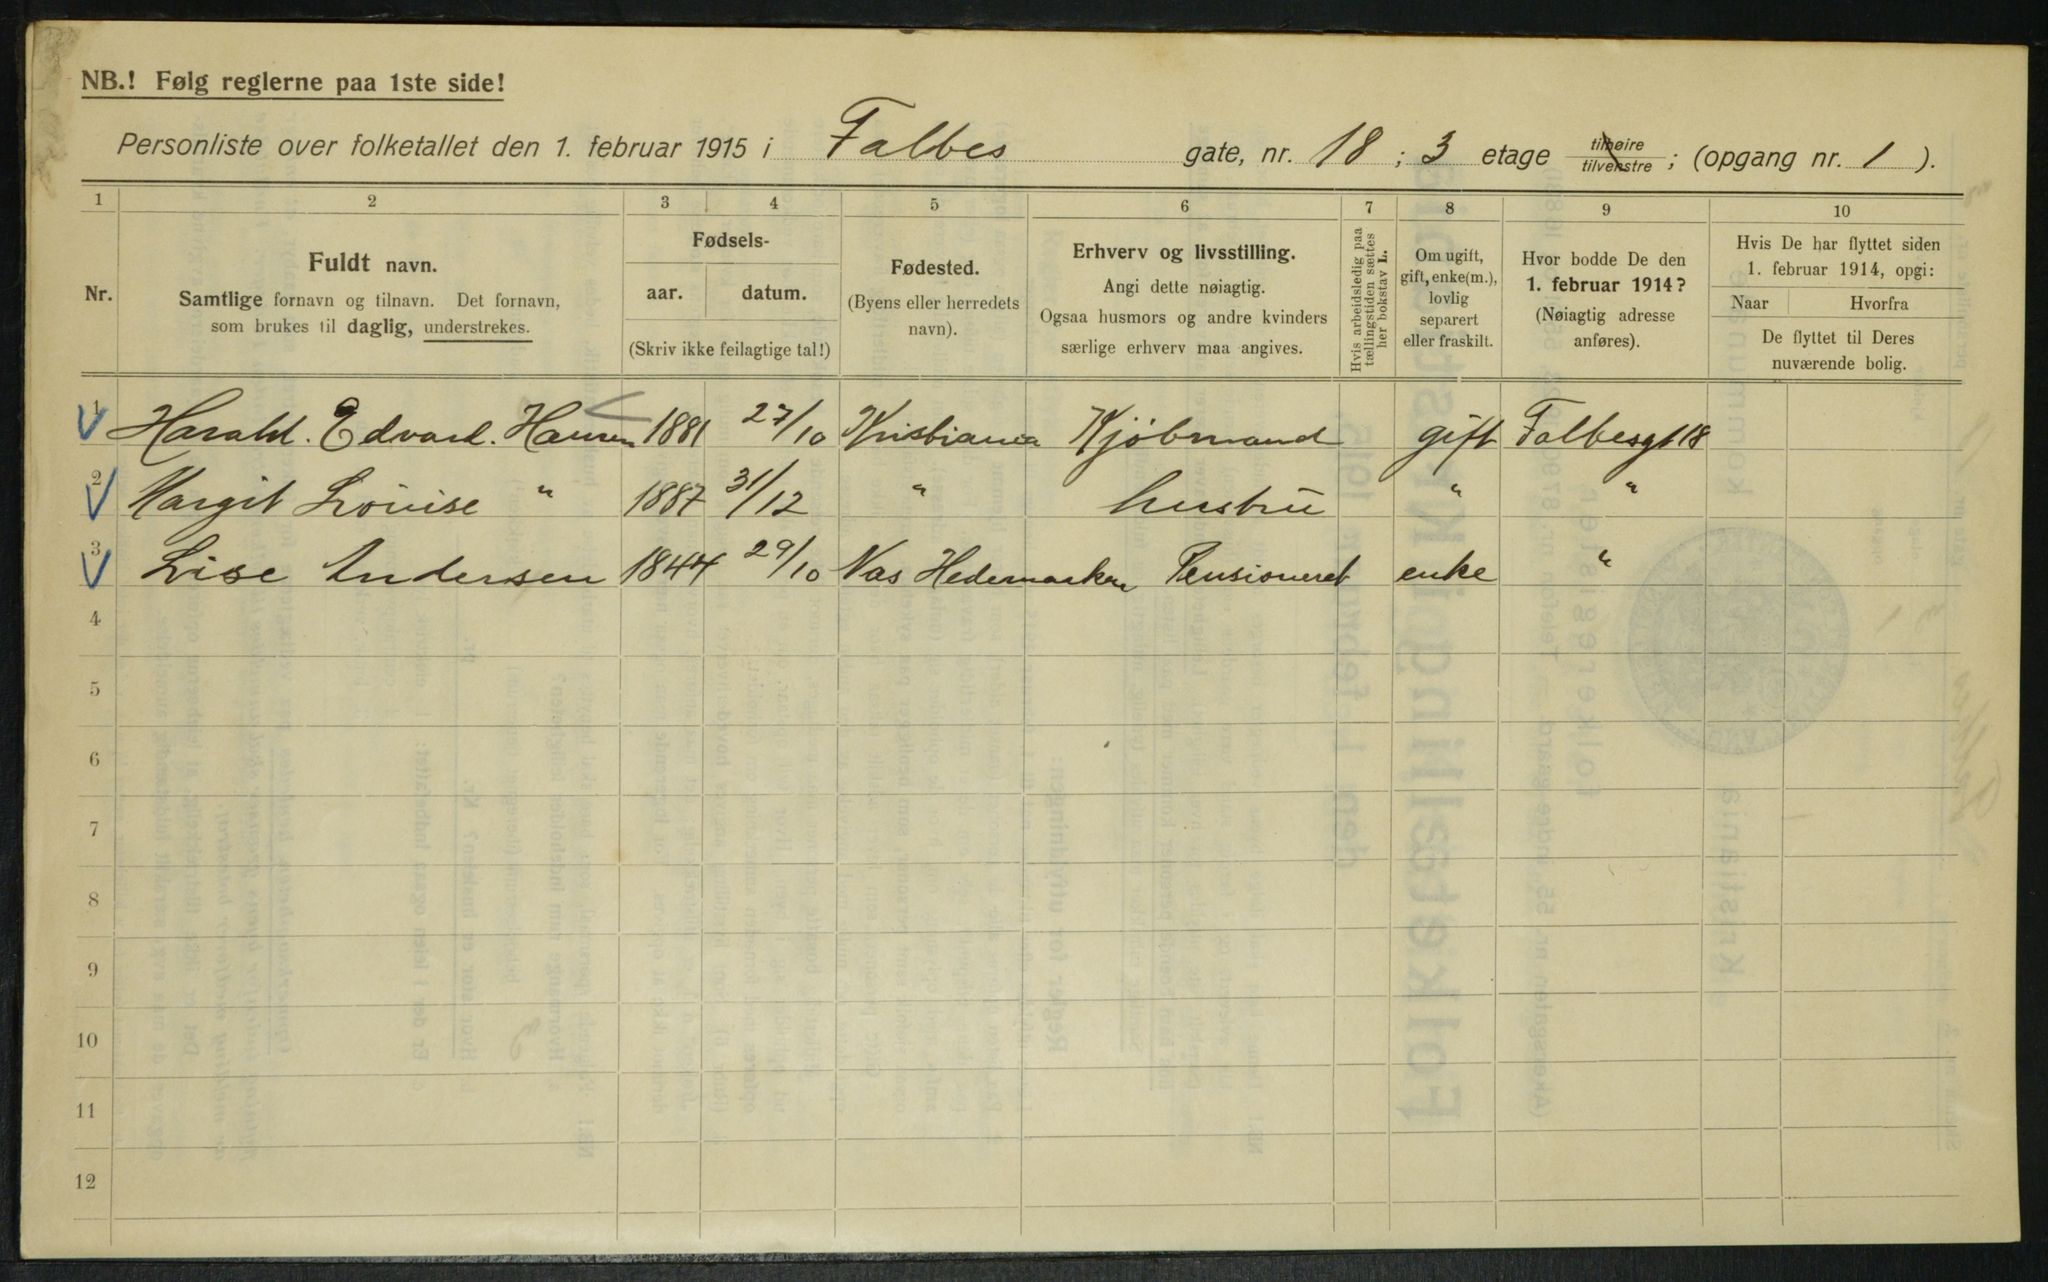 NB.! Følg reglerne paa 1ste side!
Personliste over folketallet den 1. februar 1915 i Falbes gate, nr. 18 ; 3 etage tilhøire tilvenstre ; (opgang nr. 1 ).
1 2 3 4 5 6 7 8 9 10
Nr.
Fuldt navn.
Samtlige fornavn og tilnavn. Det fornavn,
som brukes til daglig, understrekes.
Fødsels-
aar. datum.
(Skriv ikke feilagtige tal!)
Fødested.
(Byens eller herredets
navn).
Erhverv og livsstilling.
Angi dette nøiagtig.
Ogsaa husmors og andre kvinders
særlige erhverv maa angives.
Hvis arbeidsledig paa
tællingstiden sættes
her bokstav L.
Om ugift,
gift, enke(m.),
lovlig
separert
eller fraskilt.
Hvor bodde De den
1. februar 1914?
(Nøiagtig adresse
anføres).
Hvis De har flyttet siden
1. februar 1914, opgi:
Naar Hvorfra
De flyttet til Deres
nuværende bolig.
1 Harald. Edvard. Hansen 1881 27/10 Kristiania Kjöbmand gift Falbesgt 18
2 Margit Louise " 1887 31/12 " hustru " "
3 Lise Andersen 1844 29/10 Nas Hedemarken Pensioneret enke "
4
5
6
7
8
9
10
11
12